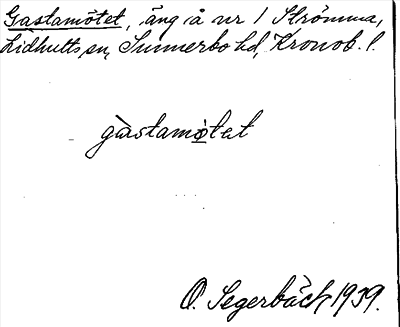 Gastamötet, äng å nr 1 Strömma,
Lidhults sn, Sunnerbo hd, Kronob. l.
gàstamö̀tet
O. Segerbäck 1939.